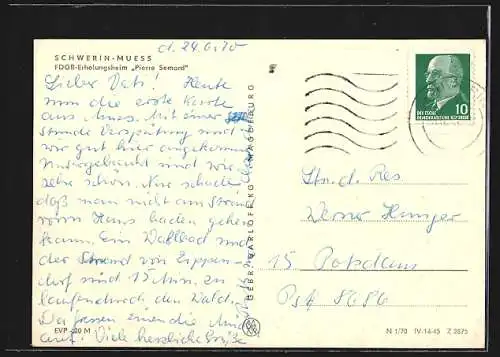 d. 24.6.70
SCHWERIN-MUESS
FDGB-Erholungsheim „Pierre Semard“
Lieber Vati! Heute
nun die erste Karte
aus Mues. Mit einer
Stunde Verspätung sind
wir gut hier angekommen
Untergebracht sind wir
sehr schön. Nur schade
daß man nicht am Strand
vom Haus baden gehen
kann. Ein Waldbad und
der Strand von Zippen-
dorf sind 15 Min. zu
laufen durch den Wald.
Da fressen einen die
auf. Viele herzliche Grüße
EVP -,20 M
GEBR. GARLOFF KG MAGDEBURG
DEUTSCHE
DEMOKRATISCHE REPUBLIK
10
Str. d. Res.
Werner
15 Potsdam
Psf 8686
N 1/70 IV-14-45 Z 2875